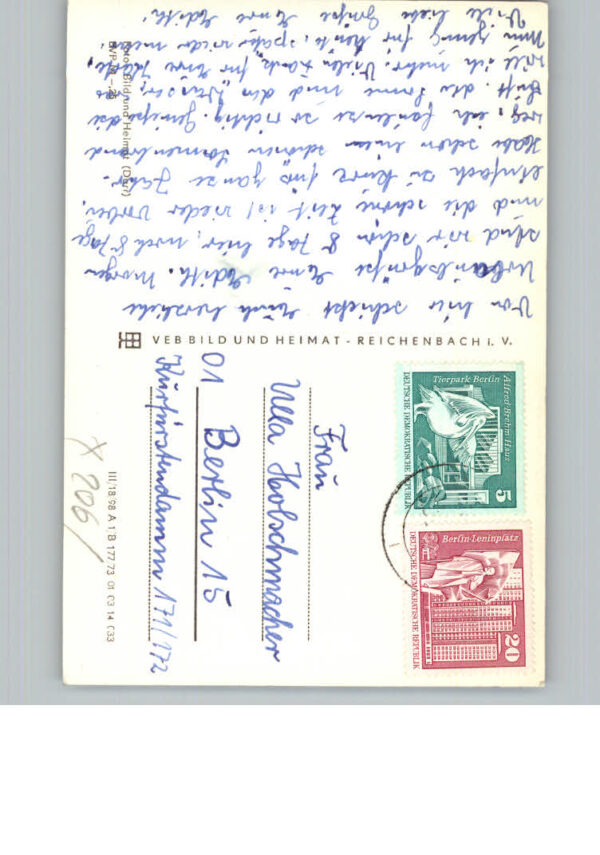 Von hier schickt Euch herzliche
Urlaubsgrüße Eure Edith. Morgen
sind wir schon 8 Tage hier, noch 8 Tage
und die schöne Zeit ist wieder vorbei,
einfach zu kurz fürs ganze Jahr.
Habe schon einen schönen Sonnenbrand
weg, ich faulenze so richtig. Genieße die
Luft, die Sonne und das Wasser,
will ich mehr. Vielen Dank für Eure Karte.
Nun genug für heute, später wieder mehr.
Viele liebe Grüße Eure Edith.
Foto: Bild und Heimat
VEB BILD UND HEIMAT - REICHENBACH i. V.
Frau
Ulla Holschmacher
01 Berlin 15
Kurfürstendamm 171/172
III/18/98 A 1/B 177/73 01 03 14 033
206/
Alfred-Brehm Haus
Tierpark Berlin
5
DEUTSCHE DEMOKRATISCHE REPUBLIK
Berlin-Leninplatz
20
DEUTSCHE DEMOKRATISCHE REPUBLIK